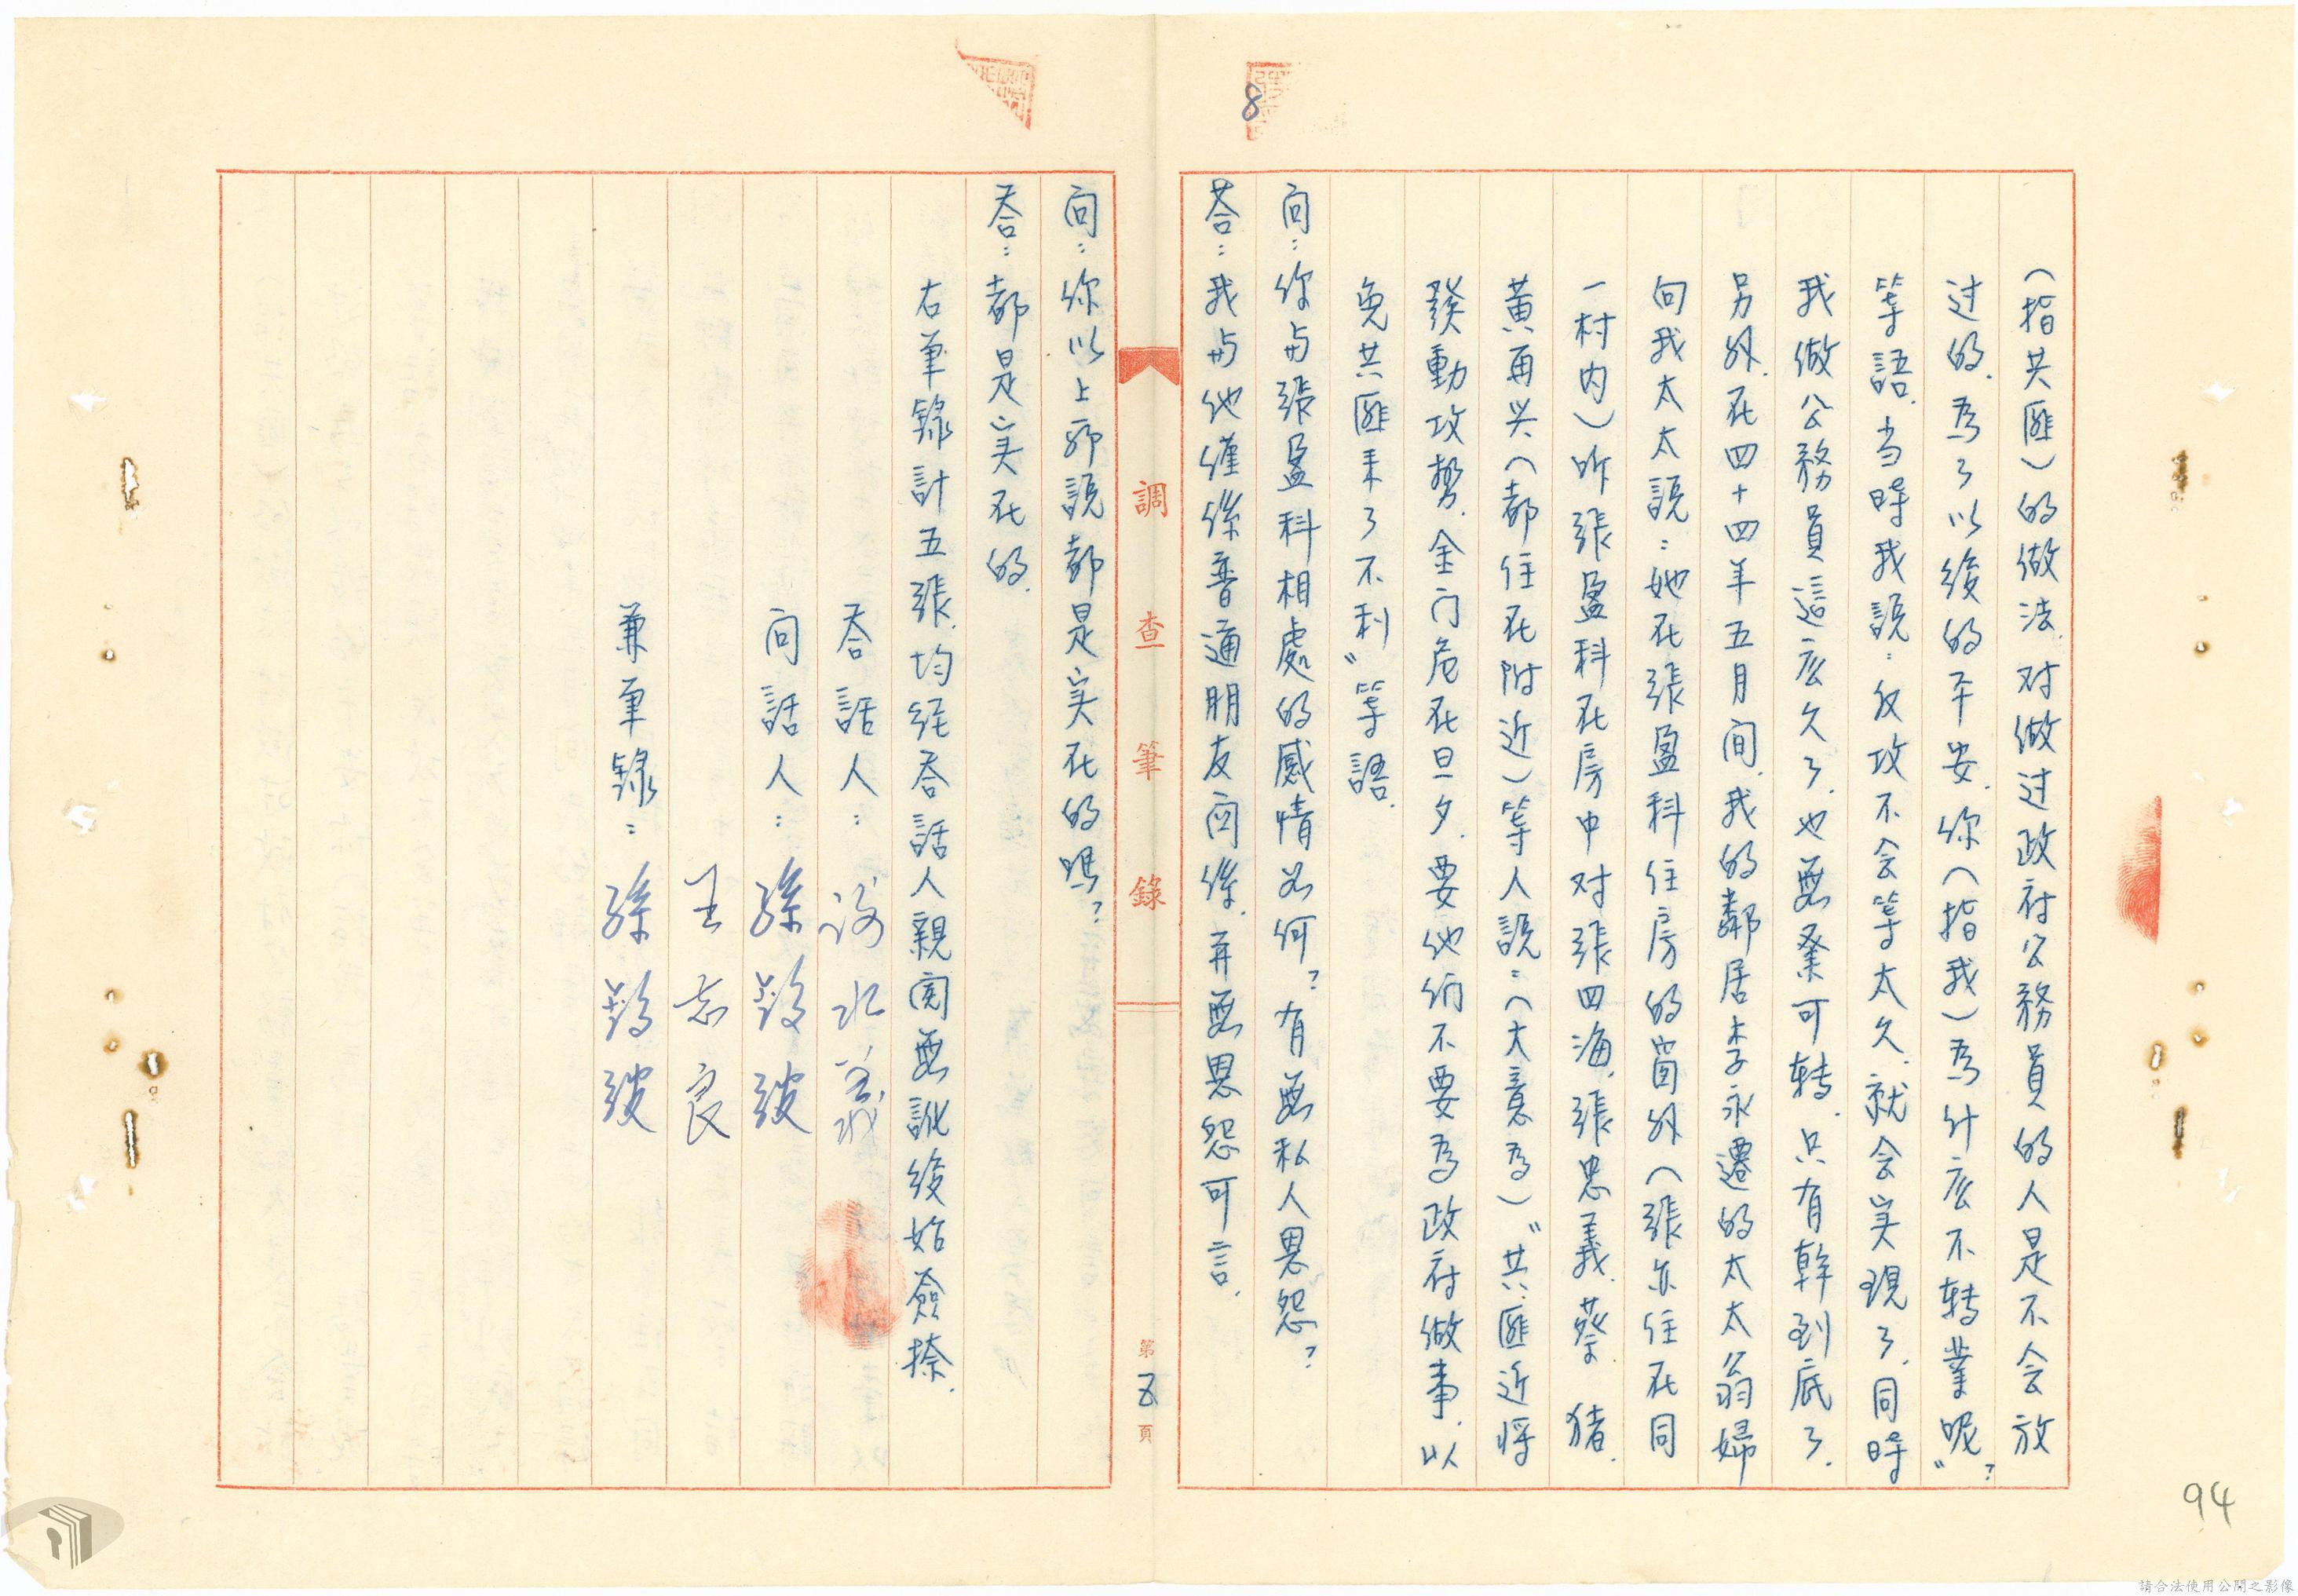 8
(指共匪)的做法.对做过政府公務員的人是不会放
过的.為了以後的平安.你(指我)為什庅不轉業呢?"
等語.当時我說:反攻不会等太久.就会实現了.同時
我做公務員這庅久了.也無業可转.只有幹到底了.
另外.在四十四年五月间.我的鄰居李永遷的太太翁婦
向我太太說:她在張盈科住房的窗外(張亦住在同
一村内)昨張盈科在房中对張四海.張忠義.蔡 猪.
黄再兴(都住在附近)等人說:(大意為)"共匪近将
發動攻势.金门危在旦夕.要他们不要為政府做事.以
免共匪来了不利"等語.
问:你与張盈科相處的感情如何?有無私人恩怨?
荅:我与他僅係普通朋友関係.并無恩怨可言.
調查筆錄
第5頁
问:你以上所說都是实在的嗎?
答:都是实在的.
右筆録計五張.均経答話人親閱無訛後始簽捺.
答話人: 水義
问話人:孫
王志良
兼筆録:孫
94
請合法使用公開之影像